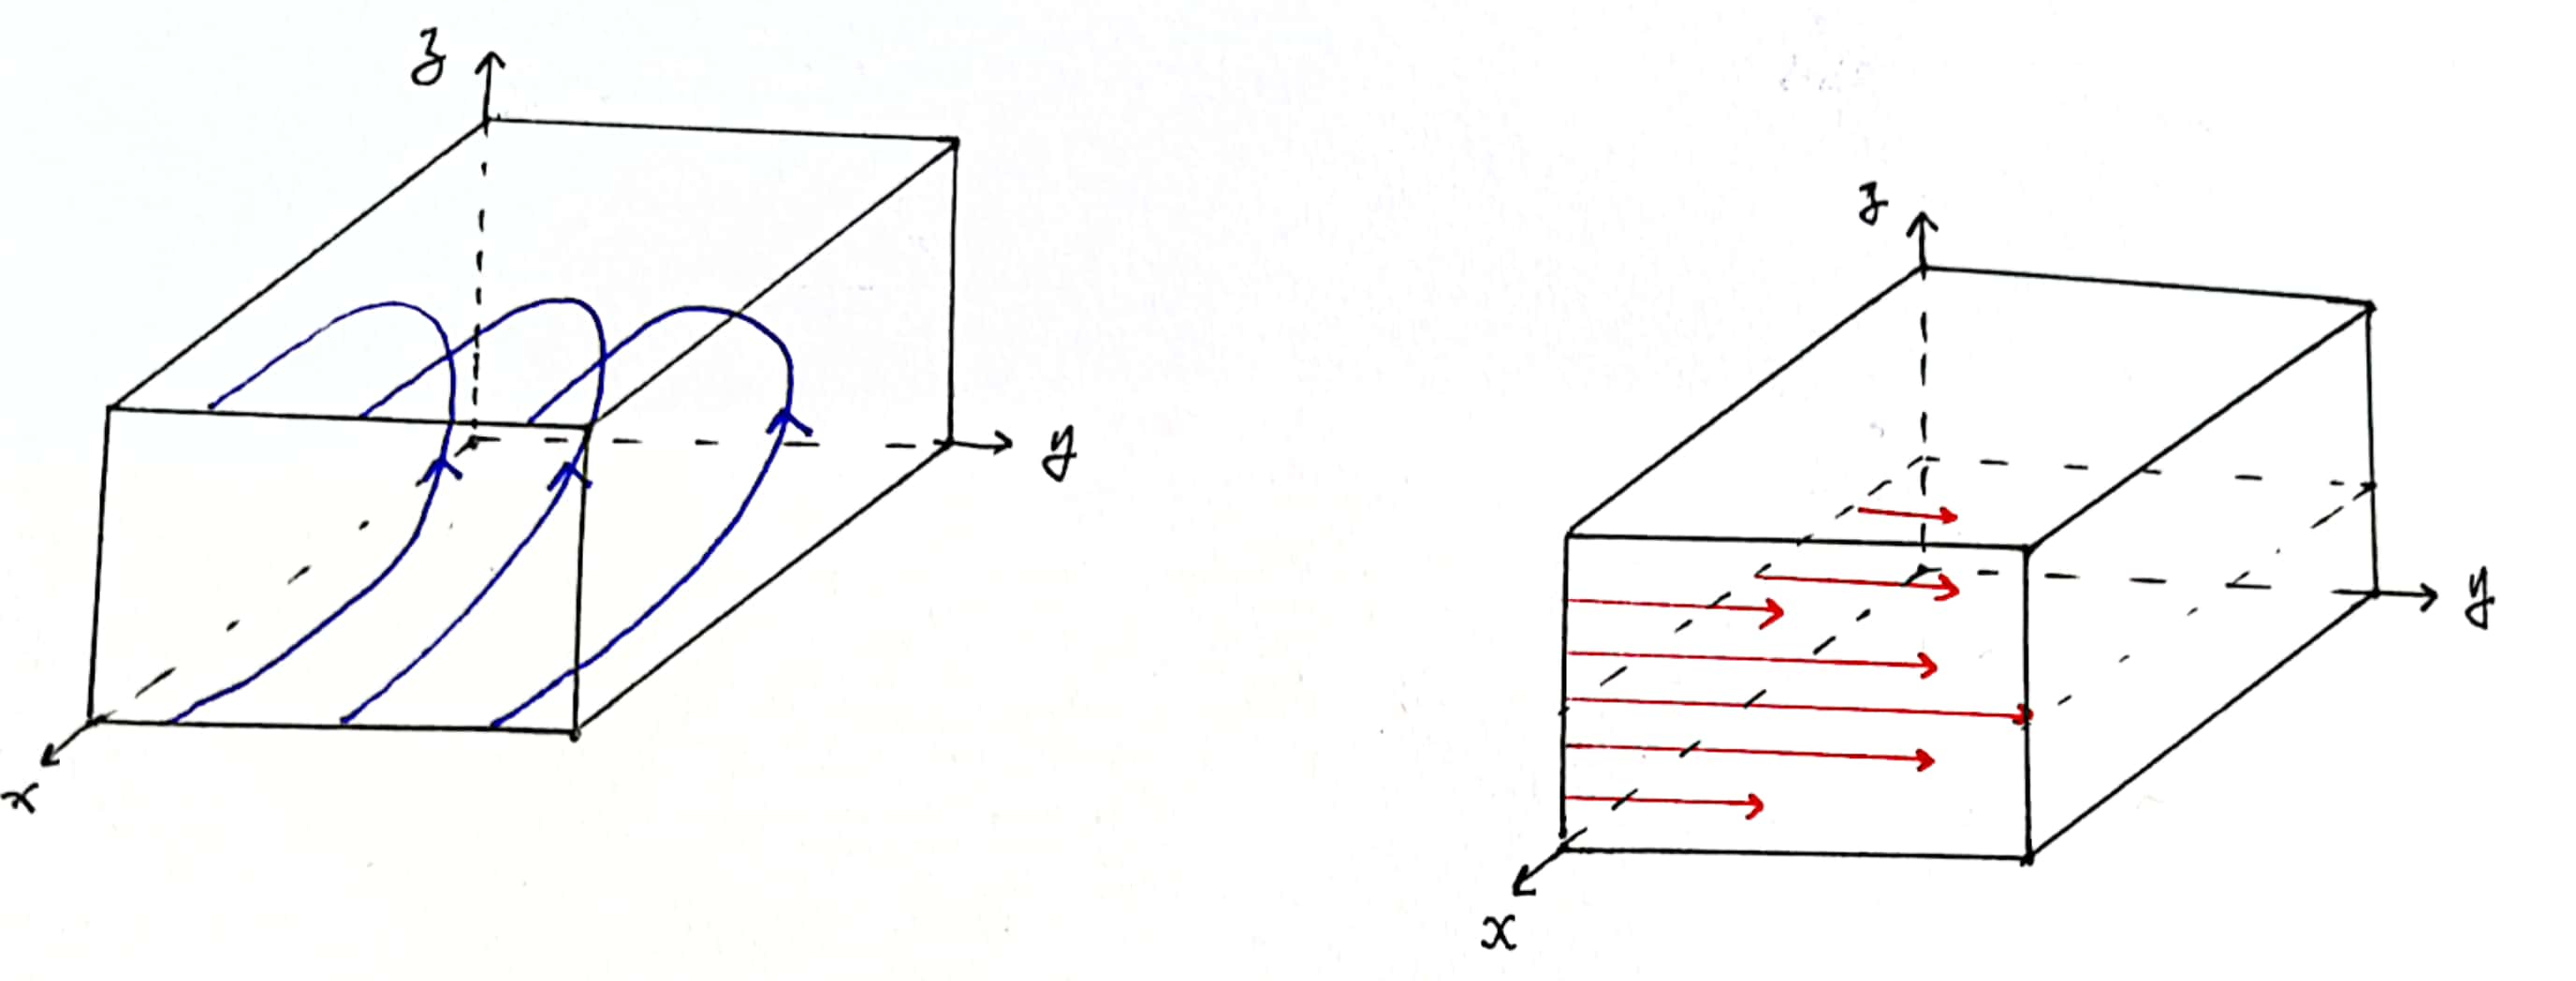 z
y
x
z
y
x